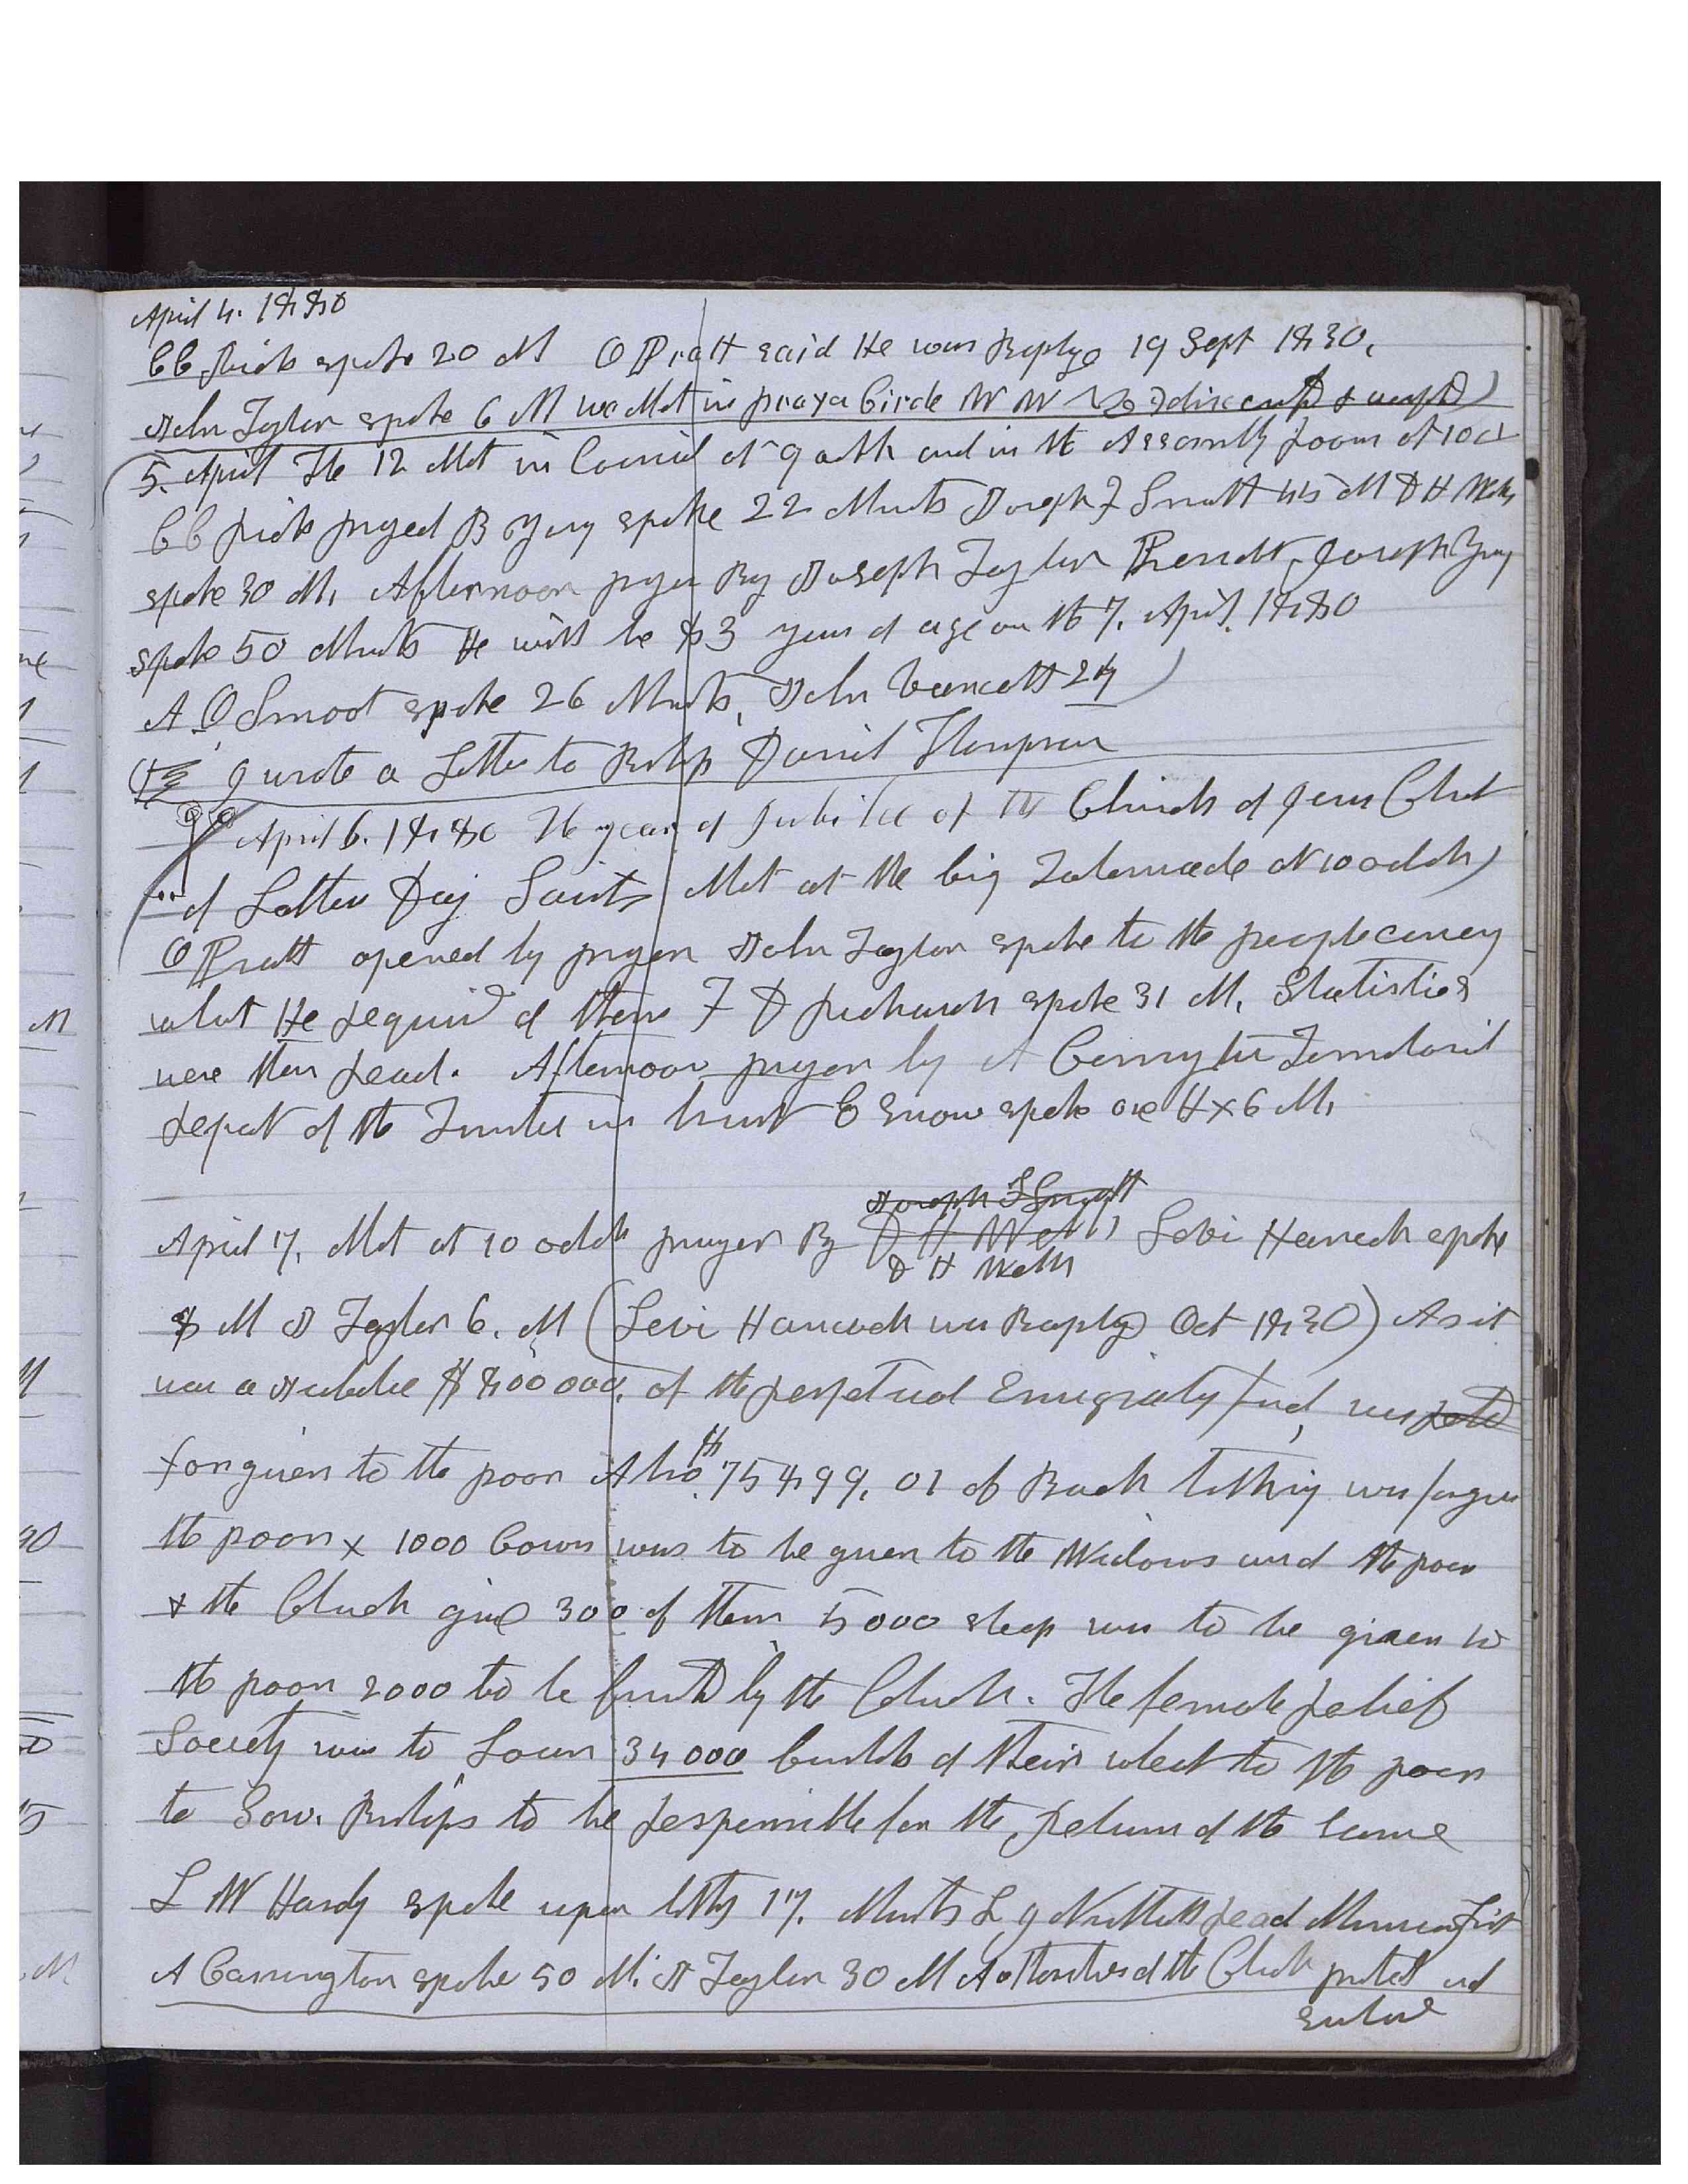 April 4. 1880
C C Rich spoke 20 M O Pratt said He was Baptized 19 Sept 1830.
John Taylor spoke 6 M we Met in prayer Circle W W
5. April The 12 Met in Council at 9 oclk and in the Assembly Room at 10 cl
C C Rich prayed B Young spoke 22 Minuts Joseph F Smith 45 M D H Wells
spoke 30 M. Afternoon prayer By Joseph Taylor Joseph Young
spoke 50 Minuts He will be 83 years of age on the 7. April. 1880
A O Smoot spoke 26 Minuts, John Vancott 24
I wrote a Letter to Bishop Daniel Thompson
April 6. 1880 The year of Jubilee of the Church of Jesus Christ
of Latter Day Saints Met at the big Tabernacle at 10 oclock
O Pratt opened by prayer John Taylor spoke to the people
what He Required of them F D Richards spoke 31 M. Statistics
were then Read. Afternoon prayer by A Carrington
Report of the Trustee in trust E Snow spoke one H & 6 M.
Joseph F Smith
April 7. Met at 10 oclok prayer By D H Wells Levi Hancock spoke
D H Wells
8 M J Taylor 6. M (Levi Hancock was Baptized Oct 1830) As it
was a Jubilee $800000. of the perpetual Emigrating fund, was
forgiven to the poor Also $75899.01 of Back tithing was forgiven
the poor & 1000 Cows was to be given to the Widows and the poor
& the Church give 300 of them 5000 sheep was to be given to
the poor 2000 to be furnished by the Church. The female Relief
Society was to Loan 34000 bushels of their wheat to the poor
to Sow. Bishops to be Responsible for the Return of the same
L W Hardy spoke upon tithing 17. Minuts L J Nuttall Read
A Carrington spoke 50 M. J Taylor 30 M Authorities of the Church presented and
sustained